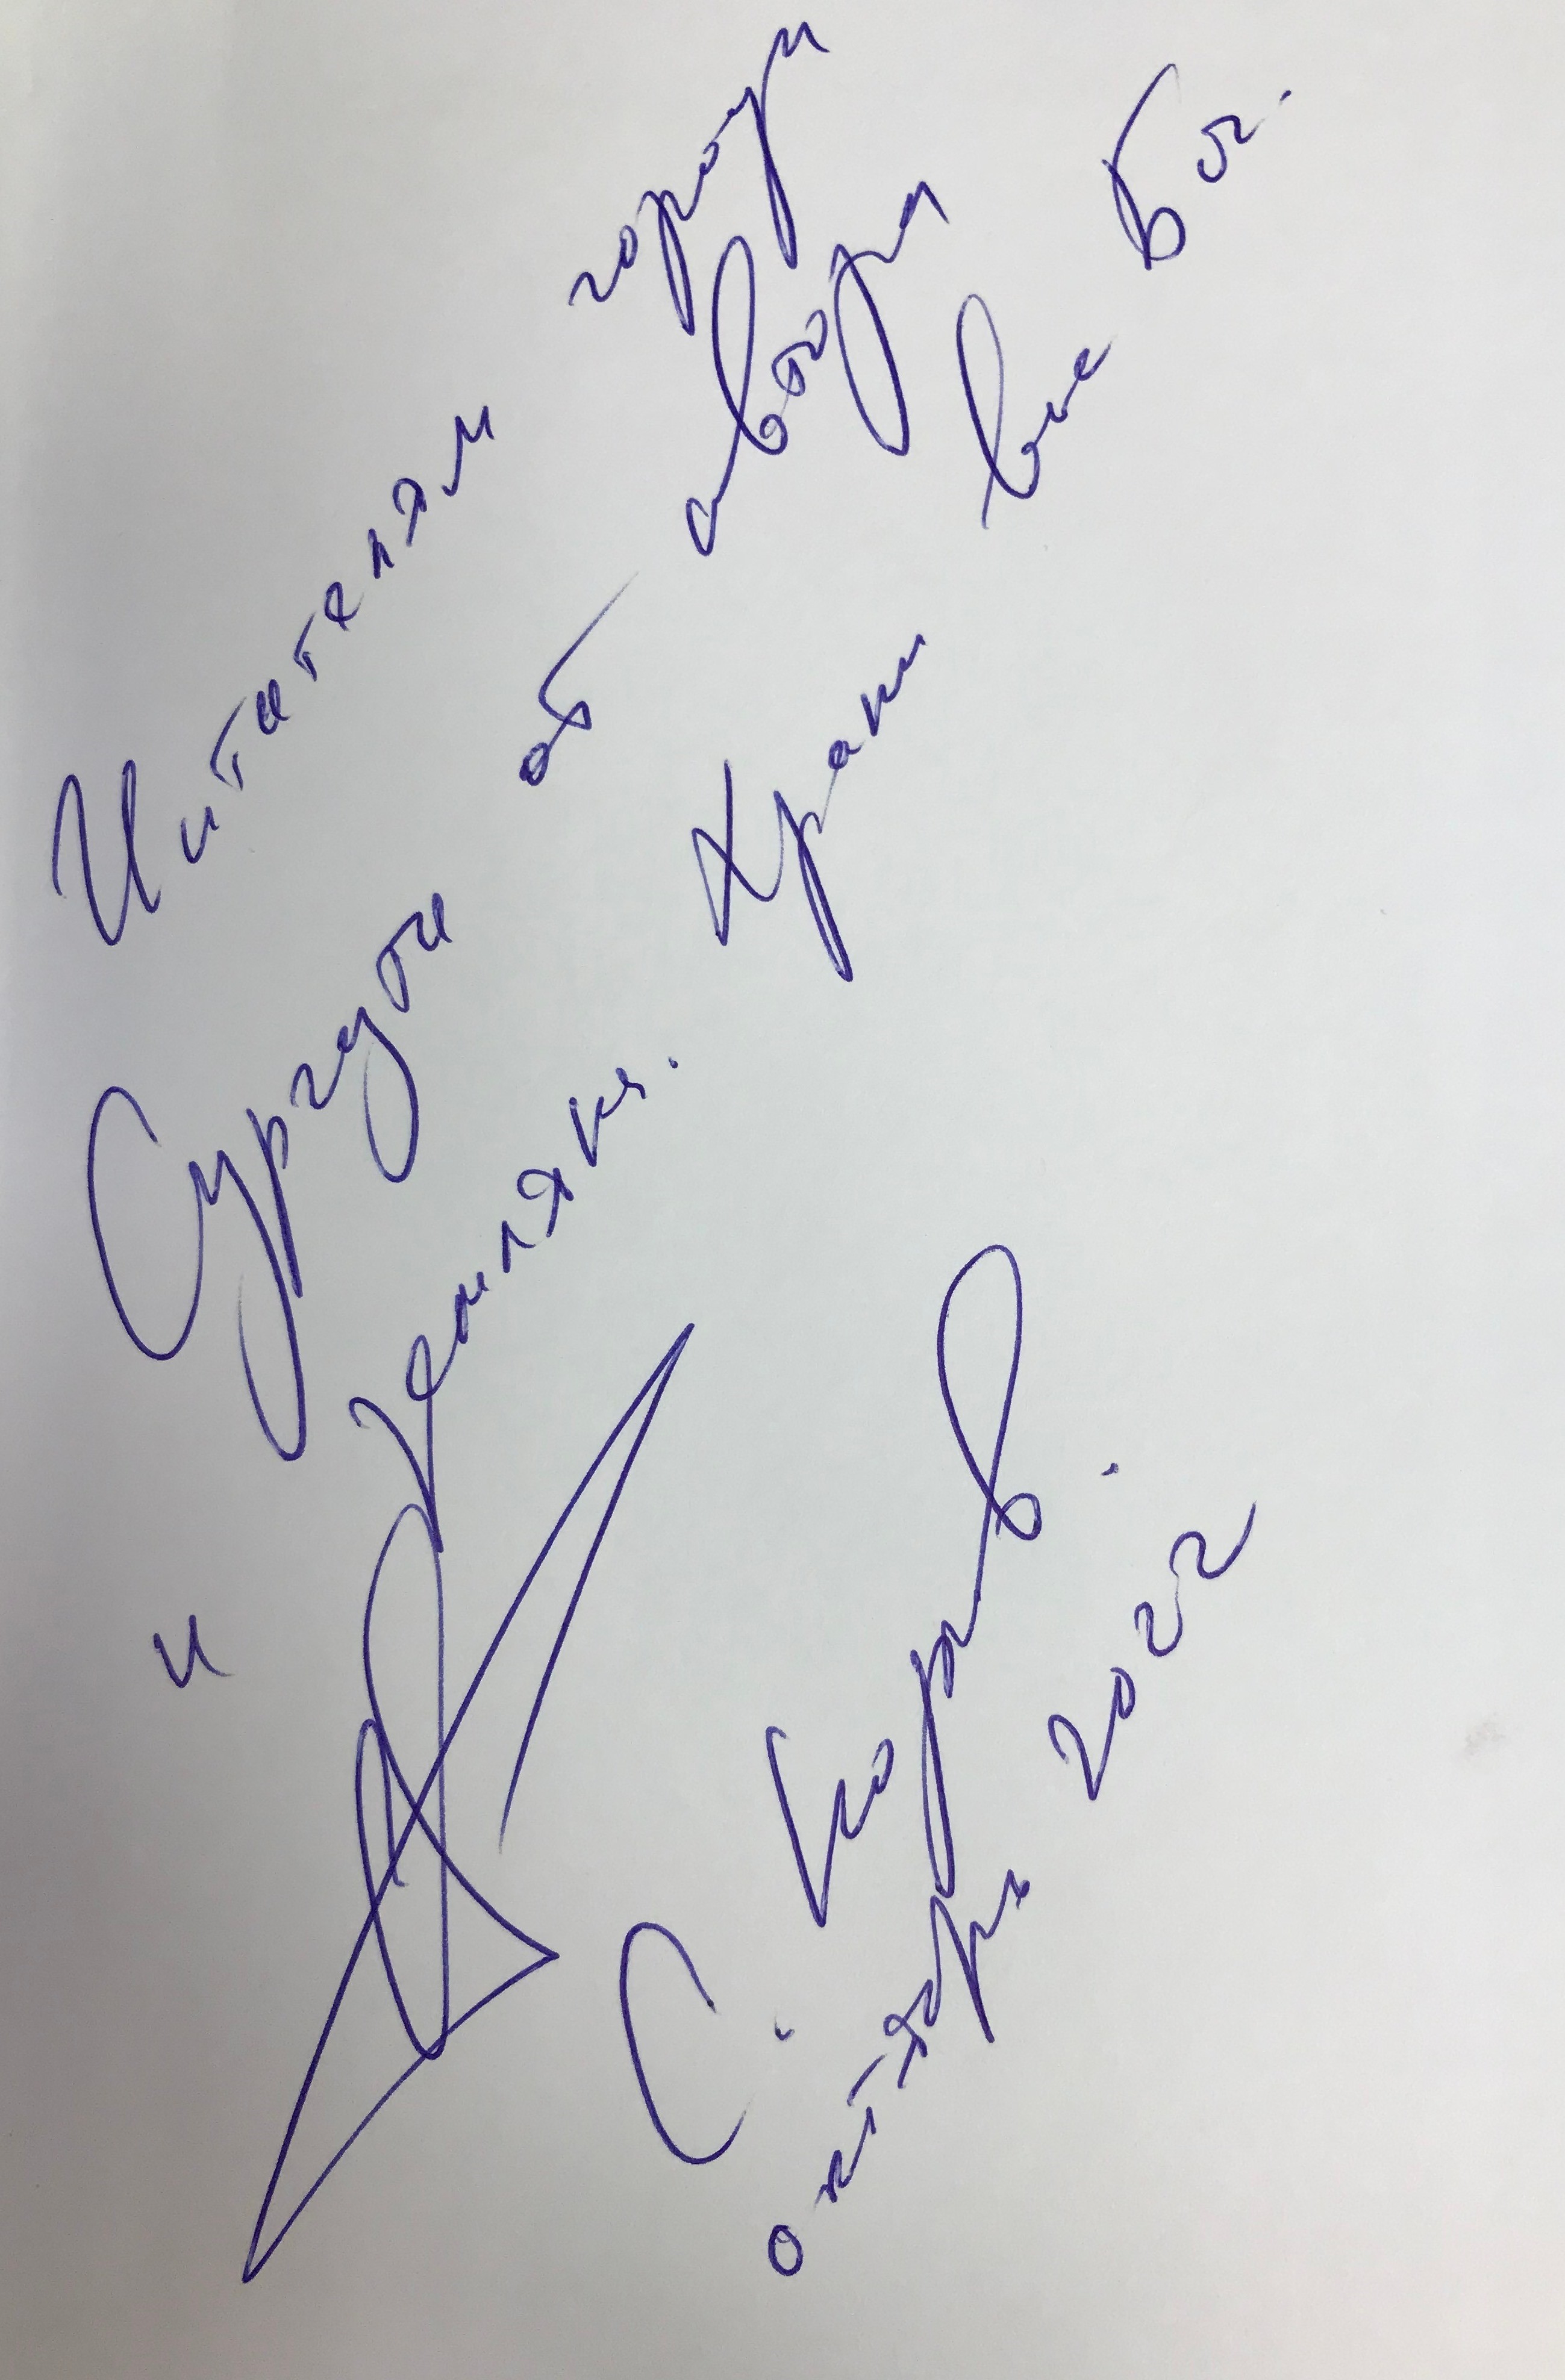 Читателям города
Сургута от автора
и земляка. Храни вас Бог.
С. Козлов.
октябрь 2022